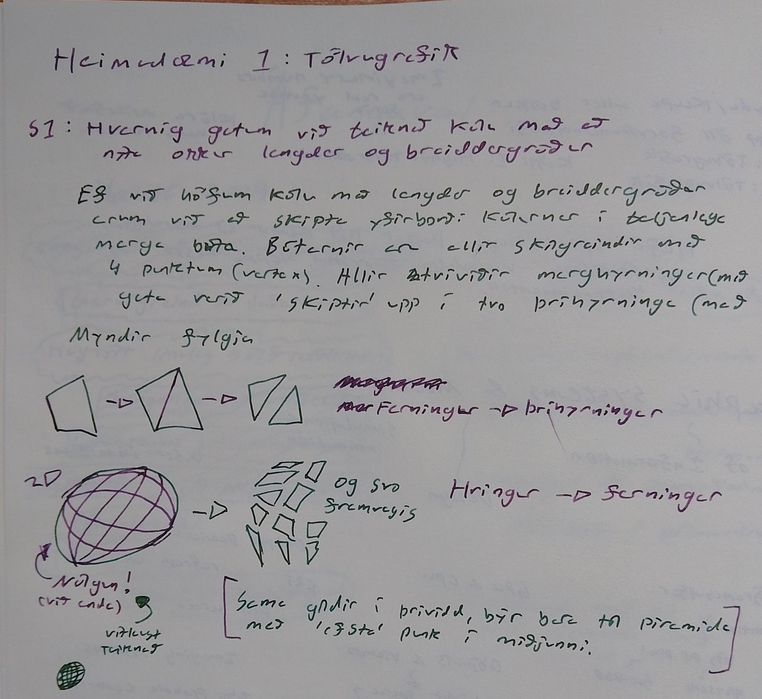 Heimadæmi 1: Tölvugrafík
S1: Hvernig getum við teiknað kúlu með að
nota okkur lengdar og breiddargráður
Ef við höfum kúlu með lengdar og breiddargráður
erum við að skipta yfirborði kúlunnar í
marga búta. Bútarnir eru allir skilgreindir með
4 punktum (vertex). Allir marghyrningar (með
geta verið 'skiptir' upp í tvo þríhyrninga (með
Myndir fylgja
Ferningur → þríhyrningar
2D
og svo
framvegis
Hringur → ferningar
Nálgun!
(við enda)
teiknað
[Sama gildir í þrívídd, býr bara til píramída
með 'efsta' punk í miðjunni.]